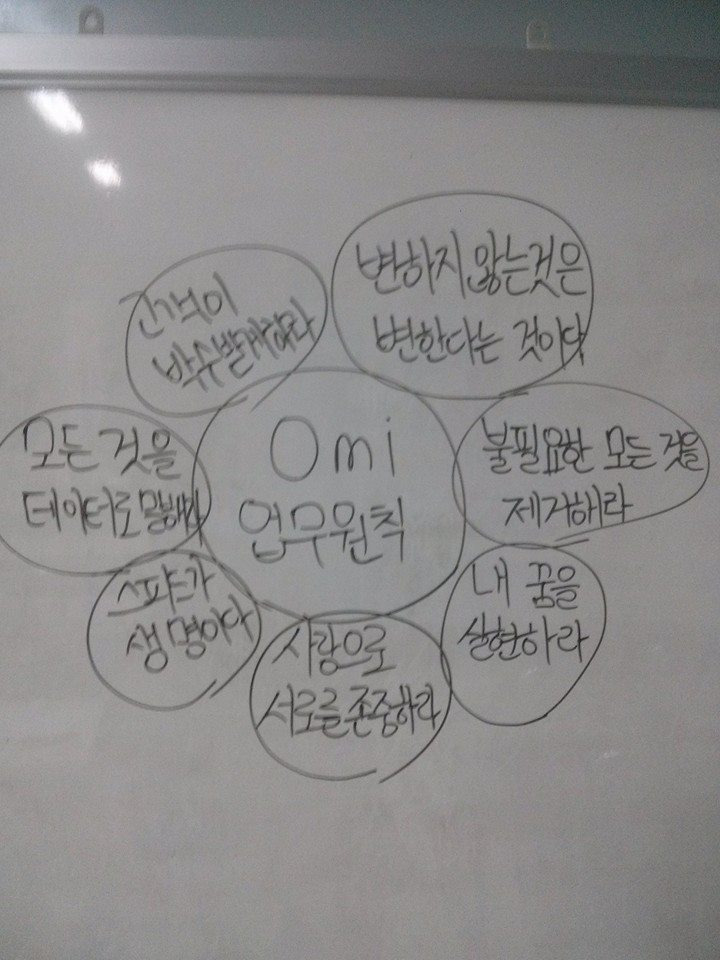 Omi
업무원칙
변하지 않는것은
변한다는 것이다
불필요한 모든 것을
제거해라
내 꿈을
실현하라
사랑으로
서로를 존중하라
생명이다
모든 것을
데이터로 말해라
박수받게하라